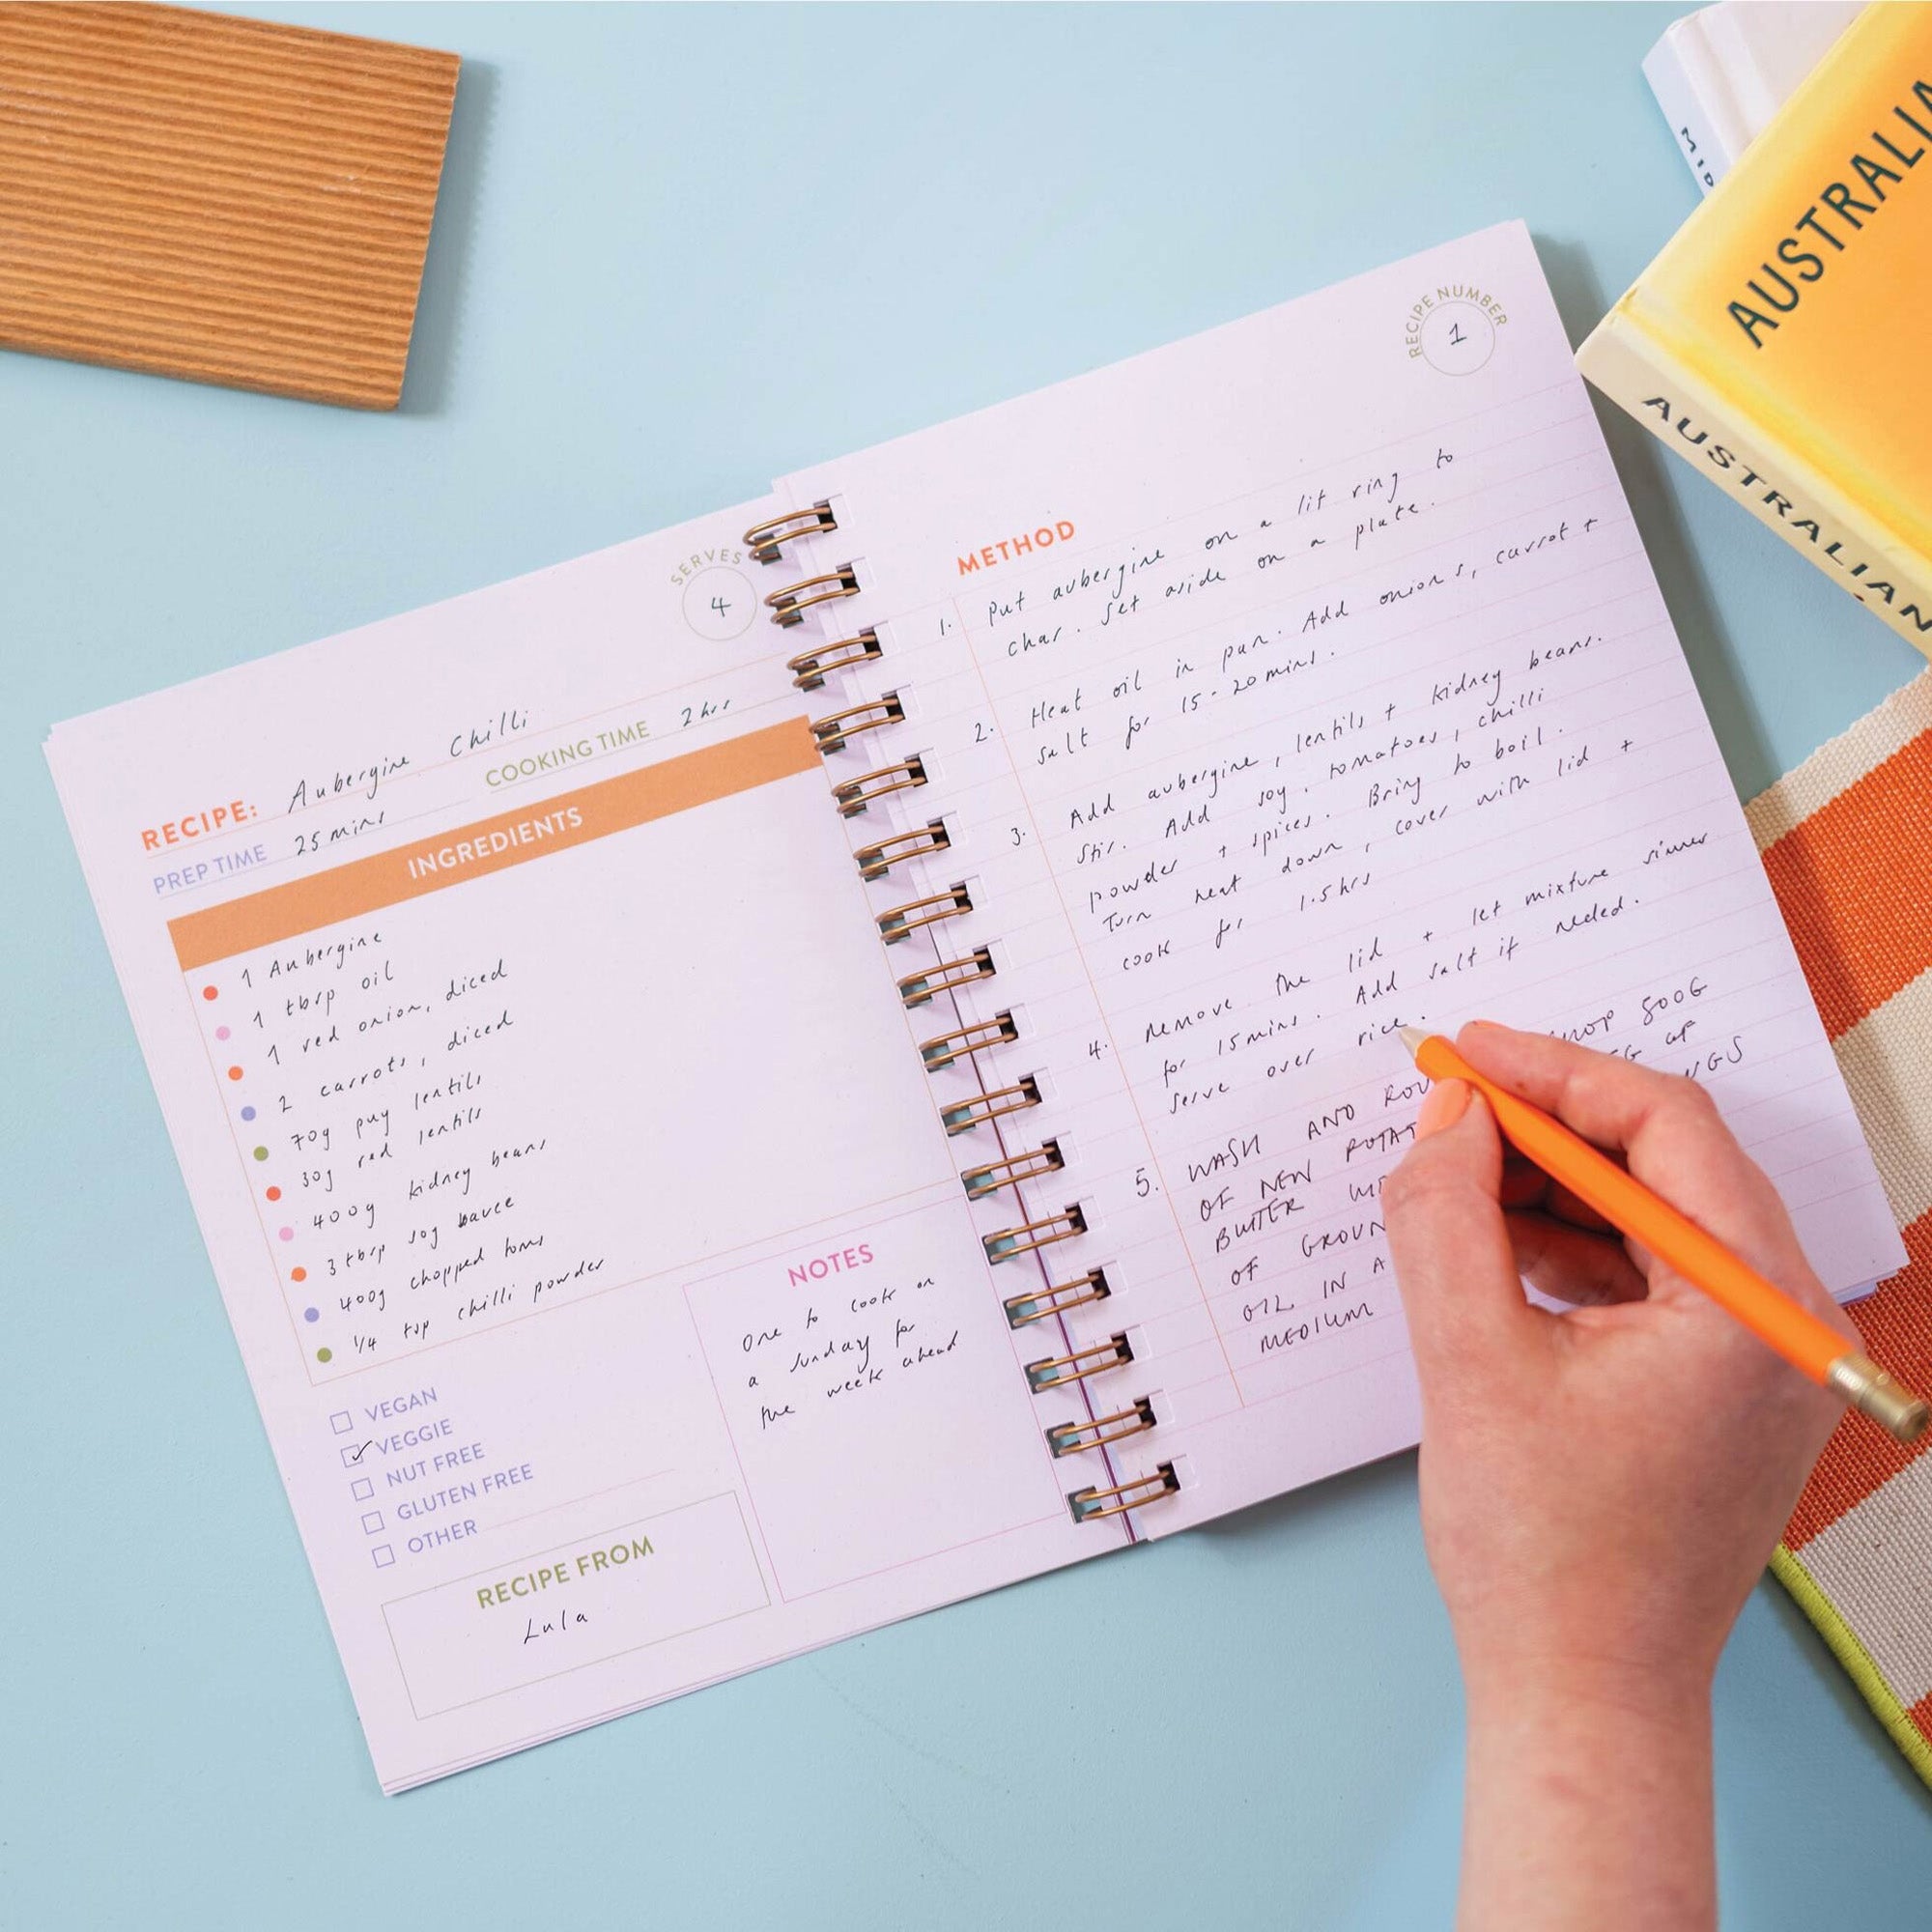 SERVES
4
RECIPE: Aubergine Chilli
PREP TIME 25 mins COOKING TIME 2 hrs
INGREDIENTS
1 Aubergine
1 tbsp oil
1 red onion, diced
2 carrots, diced
70g puy lentils
30g red lentils
400g kidney beans
3 tbsp soy sauce
400g chopped toms
1/4 tsp chilli powder
VEGAN
VEGGIE
NUT FREE
GLUTEN FREE
OTHER
RECIPE FROM
Lula
NOTES
one to cook on
a sunday for
the week ahead
RECIPE NUMBER
1
METHOD
1. Put aubergine on a lit ring to
char. Set aside on a plate.
2. Heat oil in pan. Add onions, carrot +
salt for 15-20 mins.
3. Add aubergine, lentils + kidney beans.
Stir. Add soy, tomatoes, chilli
powder + spices. Bring to boil.
Turn heat down, cover with lid +
cook for 1.5 hrs
4. Remove the lid + let mixture simmer
for 15 mins. Add salt if needed.
Serve over rice.
5. WASH AND 500G
OF NEW
BUTTER
OF
OIL IN A
MEDIUM
AUSTRALIA
AUSTRALIAN